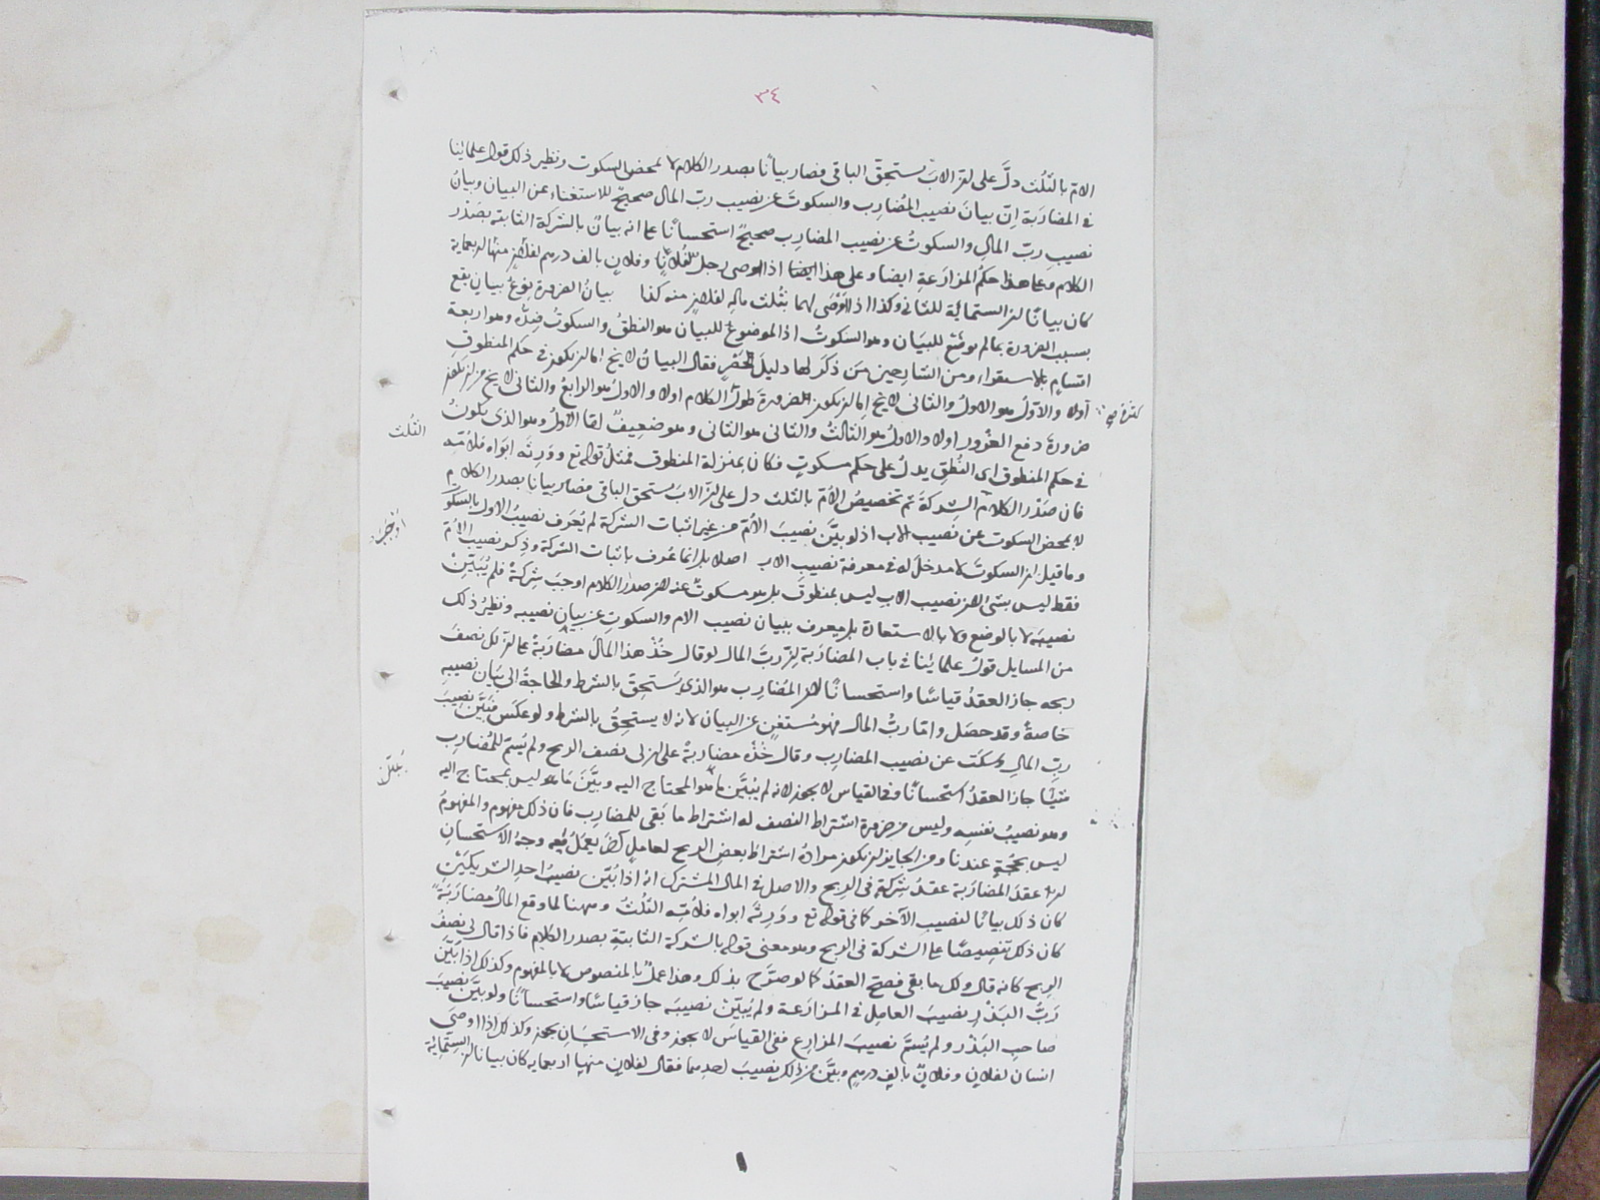 ٣٤
الام بالثلث دلَّ على ان الابَ يستحق الباقى فصار بيانًا بصدر الكلام لا بمحض السكوت ونظير ذلك قول علمائنا
فى المضاربة انّ بيانَ نصيب المُضارِب والسكوتَ عن نصيب ربّ المال صحيحٌ للاستغناء عن البيان وبيانُ
نصيبِ ربّ المالِ والسكوتُ عن نصيب المضارِب صحيحٌ استحسانًا على انه بيانٌ بالشركة الثابتة بصَدْر
الكلام وعلى هذا حكمُ المزارَعةِ ايضا وعلى هذا ايضا اذا اوصى رجل لفُلانٍ وفلانٍ بالف درهم لفلانٍ منها اربعماية
كان بيانًا ان الستماية للثانى وكذا اذا اوْصَى لهما بثُلث مالِه لفلانٍ منه كذا بيانُ الضرورة نوعُ بيانٍ يقع
بسبب الضرورة بما لم يوضَع للبيَان وهو السكوتُ اذ الموضوعُ للبيان هو النطقُ والسكوتُ ضدُّه وهو اربعة
اقسامٍ بالاستقراء ومن الشارحين مَن ذكرَ لها دليلَ الحَصْرِ فقال البيانُ لا يخ اما ان يكون فى حكم المنطوقِ
اولا والاوّلُ هو الاولُ والثانى لا يخ اما ان يكون لضرورةَ طولِ الكلام اولا والاولُ هو الرابعُ والثانى لا يخ من ان يكون
كثرة
ضرورةَ دفعِ الغُرورِ اولا والاولُ هو الثالثُ والثانى هو الثانى وهو ضعيفٌ امّا الاولُ وهو الذى يكونُ
فى حكم المنطوق اى النُطقِ يدلُ على حكم مسكوتٍ فكان بمنزلة المنطوق فمثلُ قوله تع ووَرِثَه ابَواه فلاُمّه
الثلث
فان صَدْرَ الكلامِ الشركةَ ثم تخصيصُ الاُمّ بالثلث دل على انّ الابَ يستحق الباقى فصار بيانا بصدر الكلام
اوجَبَ
لا بمحض السكوت عن نصيب الاب اذ لو بيَّن نصيبَ الاُمّ من غير اثبات الشركة لم يُعرَف نصيبُ الاول بالسكو
وما قيل ان السكوتَ لا مدخلَ له فى معرفة نصيبِ الاب اصلا بل انما عُرف باثبات الشركة وذِكر نصيب الامّ
فقط ليس بشئ لان نصيب الاب ليس بمنطوق بل هو مسكوتٌ عنه لان صدرَ الكلام اوجبَ شركةً فلم يُبَيِّن
نصيبَه لا بالوضع ولا بالاستعارة بل يعرف ببيان نصيب الام والسكوتِ عن بيانِ نصيبه ونظيرُ ذلك
من المسايل قولُ علمائنا فى باب المضاربة انّ ربَّ المال لو قال خُذْ هذا المالَ مضارَبةً على ان لك نصفَ
ربحه جاز العقدُ قياسًا واستحسانًا لان المُضارِب هو الذى يَستحِقُّ بالشرط والحاجةُ الى بيَانِ نصيبِه
خاصةً وقد حصَل وامّا ربُّ المال فهو مُستغنٍ عن البيان لانه لا يستحِقُّ بالشرط ولو عكَس فبَيَّن نصيبَ
ربّ المالِ وسكَت عن نصيب المضارِب وقال خُذْه مضاربةً على ان لى نصفَ الربح ولم يُسمّ للمُضارِب
شيئا جاز العقدُ استحسانًا وفى القياس لا يجوز لانه لم يبيّن ما هو المحتاج اليه وبيَّنَ مَا هو ليس بمحتاج اليه
وهو نصيبُ نفسِه وليس من ضرورة اشتراط النصف له اشتراط ما بَقى للمضارِب فان ذلك مفهوم والمفهومُ
ليس بحُجّةٍ عندنا ومن الجايز ان يكون مرادُهُ اشتراطَ بعضِ الربح لعاملٍ آخَر يعمَلُ معه وجهُ الاستحسانِ
انّ عقدَ المضارَبة عقدُ شركةٍ فى الربح والاصل فى المال المشترك انه اذا بُيّن نصيبُ احدِ الشريكَيْن
كان ذلك بيانًا لنصيب الآخر كما فى قوله تع ووَرِثَه ابواه فلاُمّه الثُلُثُ وههنا لما وقع المالُ مضارَبَةً
كان ذلك تنصيصًا على الشركة فى الربح وهو معنى قوله بالشركة الثابتةِ بصدر الكلام فاذا قال لى نصفُ
الربح كانه قال ولك ما بقى فصحّ العقدُ كما لو صرَّح بذلك وهذا عملٌ بالمنصوص لا بالمفهوم وكذلك اذا بَيَّنَ
رَبُّ البَذْرِ نصيبَ العامِل فى المزارَعة ولم يُبيّن نصيبَه جاز قياسًا واستحسانًا ولو بيَّن نصيبَ
صاحبِ البَذْر ولم يُسَمِّ نصيبَ المزارِع ففى القياسَ لا يجوز وفى الاستحسَانِ يجوز وكذلك اذا اوصَى
انسان لفلانٍ وفلانٍ بالفِ درهمٍ وبيَّن من ذلك نصيبَ احدِهما فقال لفلانٍ منها اربعمايه كان بيانا ان الستماية